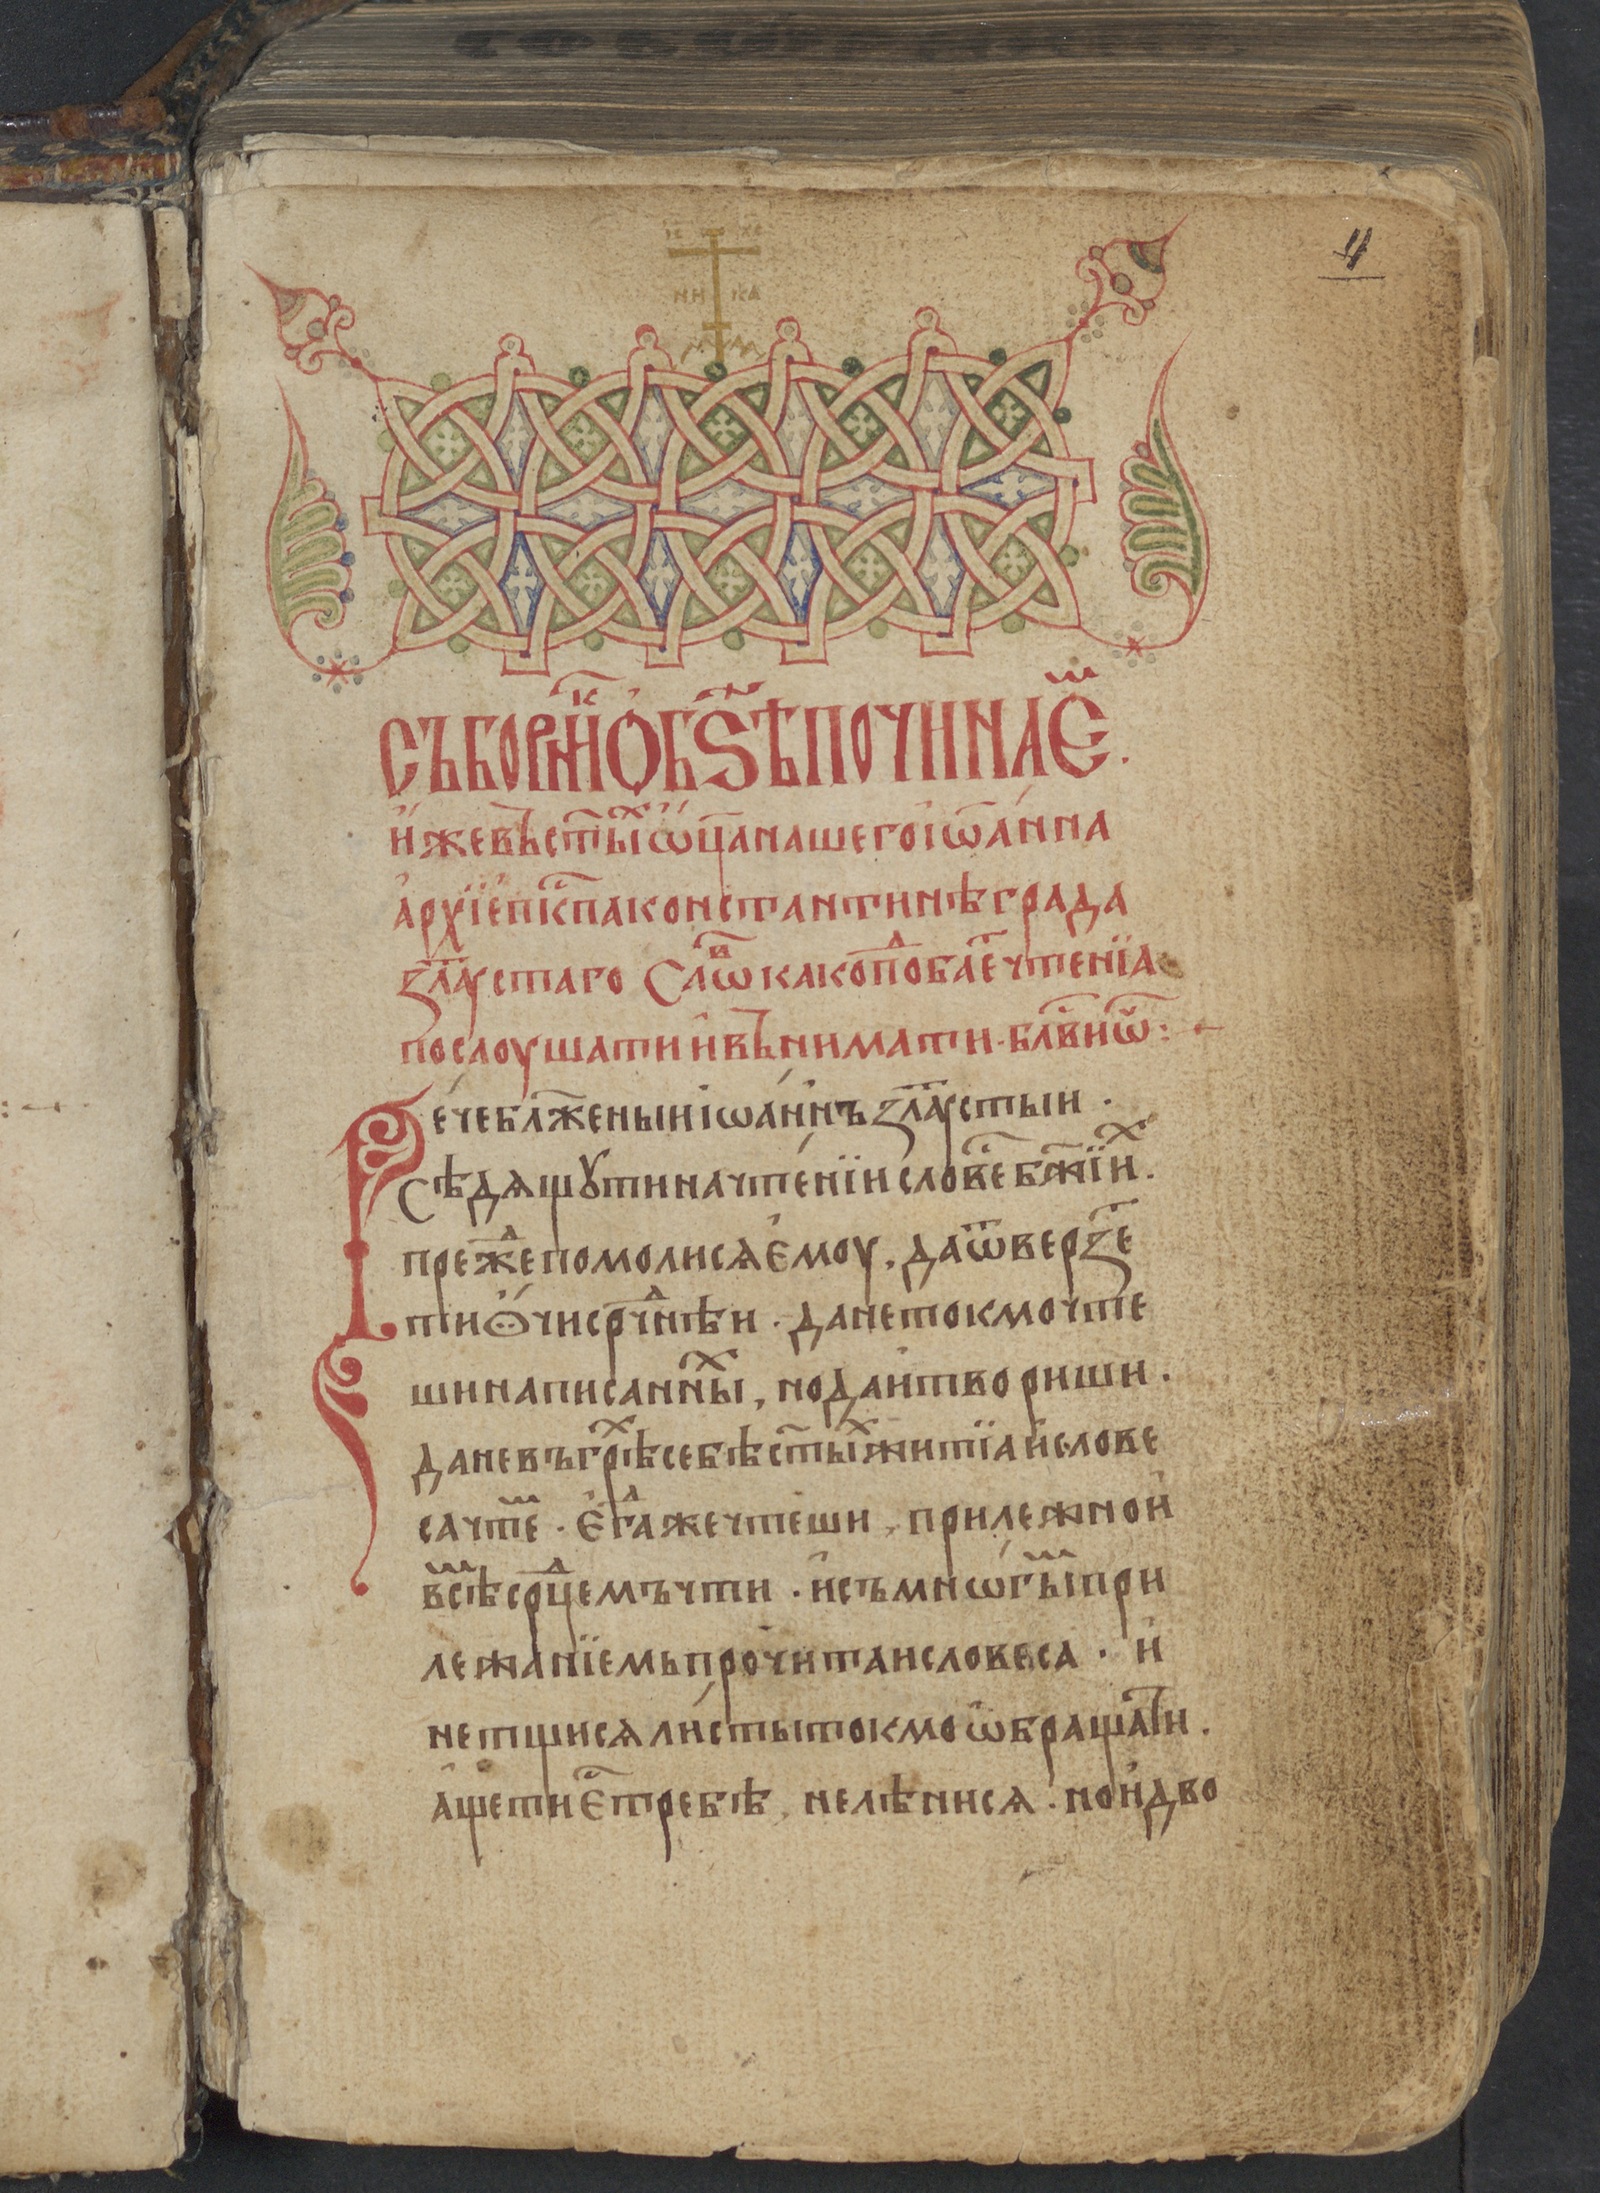 4
ІС ХС
НИ КА
СЪБОРНИК О БЅѢ ПОЧИНАЕТ.
иже въ ст҃ых ѡц҃а нашего іѡанна
архіеп҃кпа константинѣграда
зла҃устаго Слѡв҃ како пⷣобае҃ чтеніа
послоушати и вънимати. бл҃ви ѿ:
Рече бл҃женыи іѡаннъ зла҃устыи.
Сѣдящу ти на чтеніи слове҃ бж҃іих.
преж҃е помолися ему, да ѿверзе҃
ти ꙩчи срⷣчнѣи. да не токмо чте
ши написанных, но да и твориши.
да не въ грѣⷯ себѣ ст҃ых житіа и слове
са чте҃. Егⷣа же чтеши, прилежно и
всѣⷨ срⷣцемъ чти. и съ мнѡгыⷨ при
лежаніемь прочитаи словеса. и
не тщися листы токмо ѡбращати.
аще ти е҃ требѣ, не лѣнися. но и дво